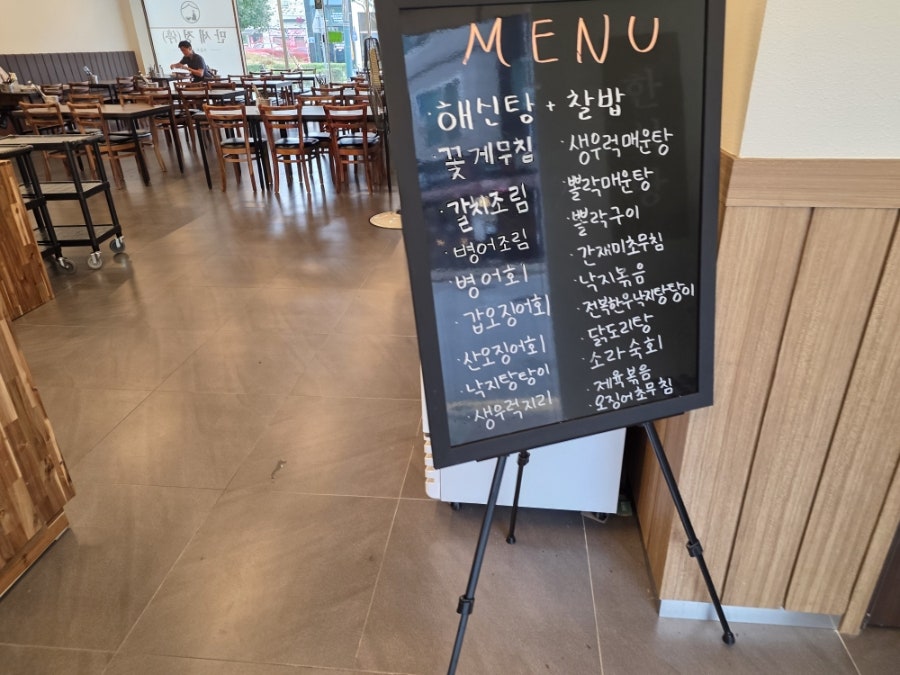 만세정(뒤)
MENU
·해신탕 + 찰밥
·꽃게무침
·갈치조림
·병어조림
·병어회
·갑오징어회
·산오징어회
·낙지탕탕이
·생우럭지리
·생우럭매운탕
·뽈락매운탕
·뽈락구이
·간재미초무침
·낙지볶음
·전복한우낙지탕탕이
·닭도리탕
·소라숙회
·제육볶음
·오징어초무침